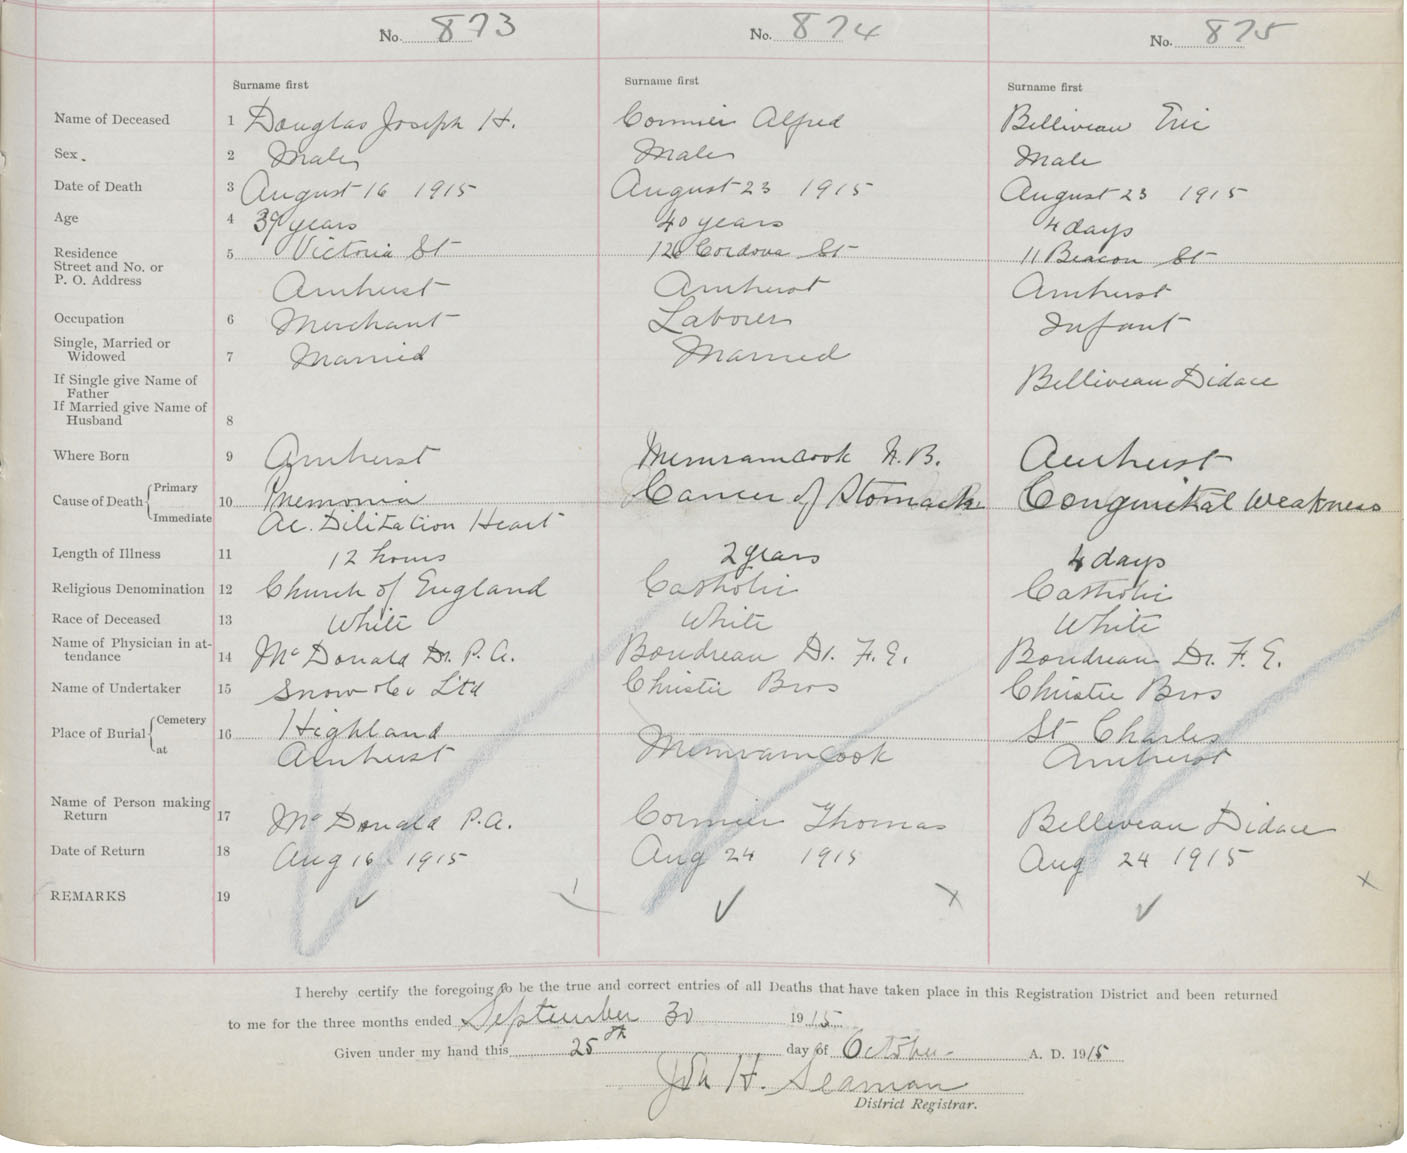 No. 873 No. 874 No. 875
Surname first Surname first Surname first
Name of Deceased 1 Douglas Joseph H. Cormier Alfred Belliveau Eric
Sex. 2 Male Male Male
Date of Death 3 August 16 1915 August 23 1915 August 23 1915
Age 4 39 years 40 years 4 days
Residence 5 Victoria St 126 Cordova St 11 Beacon St
Street and No. or
P. O. Address Amherst Amherst Amherst
Occupation 6 Merchant Laborer Infant
Single, Married or
Widowed 7 Married Married
If Single give Name of
Father Belliveau Didace
If Married give Name of
Husband 8
Where Born 9 Amherst Memramcook N.B. Amherst
Cause of Death Primary 10 Pnemonia Cancer of Stomach Congenital Weakness
Immediate Ac. Dilitation Heart
Length of Illness 11 12 hours 2 years 4 days
Religious Denomination 12 Church of England Catholic Catholic
Race of Deceased 13 White White White
Name of Physician in at-
tendance 14 McDonald Dr. P.A. Boudreau Dr. F.E. Boudreau Dr. F.E.
Name of Undertaker 15 Snow & Co Ltd Christie Bros Christie Bros
Place of Burial Cemetery 16 Highland St Charles
at Amherst Memramcook Amherst
Name of Person making
Return 17 McDonald P.A. Cormier Thomas Belliveau Didace
Date of Return 18 Aug 16 1915 Aug 24 1915 Aug 24 1915
REMARKS 19
I hereby certify the foregoing to be the true and correct entries of all Deaths that have taken place in this Registration District and been returned
to me for the three months ended September 30 1915
Given under my hand this 25th day of October A. D. 1915
H. Seaman
District Registrar.